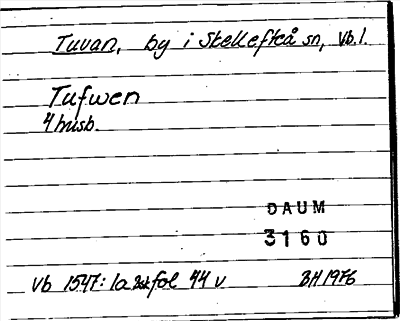 Tuvan, by i Skellefteå sn, Vb.l.
Tufwen
4 husb.
DAUM
3160
Vb 1547: 1a fol 44 v BH 1976